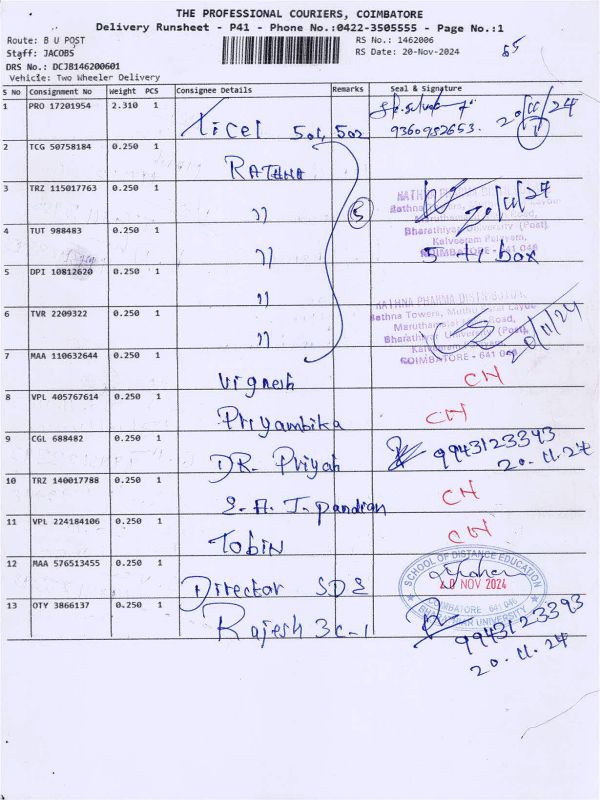 THE PROFESSIONAL COURIERS, COIMBATORE
Delivery Runsheet - P41 - Phone No.:0422-3505555 - Page No.:1
Route: B U POST
RS No.: 1462006
Staff: JACOBS
RS Date: 20-Nov-2024
DRS No.: DCJB146200601
Vehicle: Two Wheeler Delivery
S No Consignment No Weight PCS Consignee Details Remarks Seal & Signature
1 PRO 17201954 2.310 1 Licel 501, 502 9360952653. 20/11/24
2 TCG 50758184 0.250 1 RATHNA
3 TRZ 115017763 0.250 1 " 5 20/11/24
RATHNA PHARMA
Rathna Towers,
Bharathiyar University (Post),
Kalveeram Palayam,
COIMBATORE - 641 046
4 TUT 988483 0.250 1 " 5 +1 box
5 DPI 10812620 0.250 1 "
RATHNA PHARMA DISTRIBUTOR
Rathna Towers,
Road,
Bharathiyar University (Post),
COIMBATORE - 641 046
6 TVR 2209322 0.250 1 " 20/11/24
7 MAA 110632644 0.250 1 Vignesh CN
8 VPL 405767614 0.250 1 Priyambika CN
9 CGL 688482 0.250 1 DR. Priyah 9943123393
20.11.24
10 TRZ 140017788 0.250 1 E. A. J. pandian CN
11 VPL 224184106 0.250 1 Tobin CN
12 MAA 576513455 0.250 1 Director SDE
SCHOOL OF DISTANCE EDUCATION
20 NOV 2024
COIMBATORE 641 046
BHARATHIAR UNIVERSITY
13 OTY 3866137 0.250 1 Rajesh 3c-1 9943123393
20.11.24